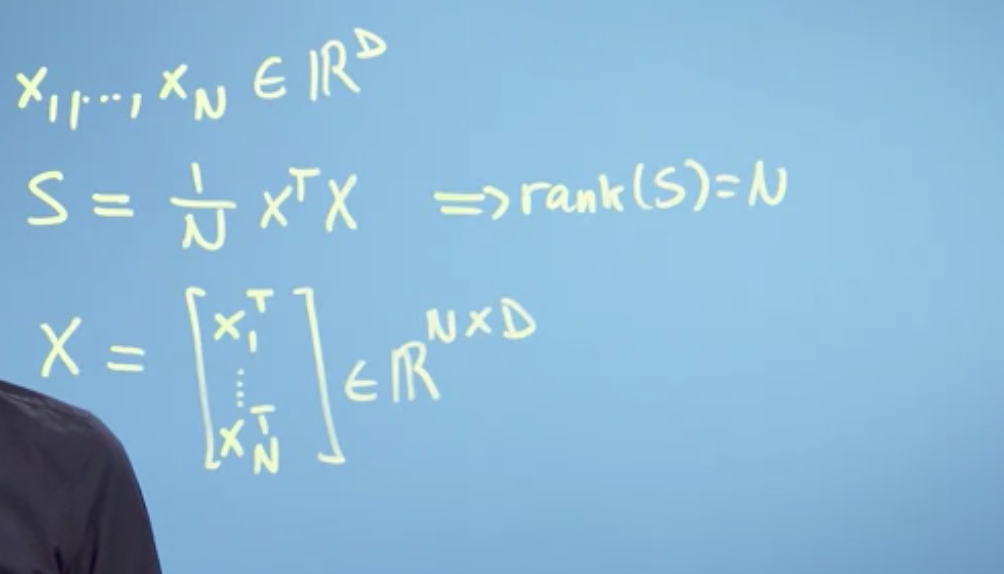 x₁,...., x_N ∈ ℝᴰ
S = 1/N XᵀX ⟹ rank(S)=N
X = [x₁ᵀ ⋮ x_Nᵀ] ∈ ℝ^{N×D}